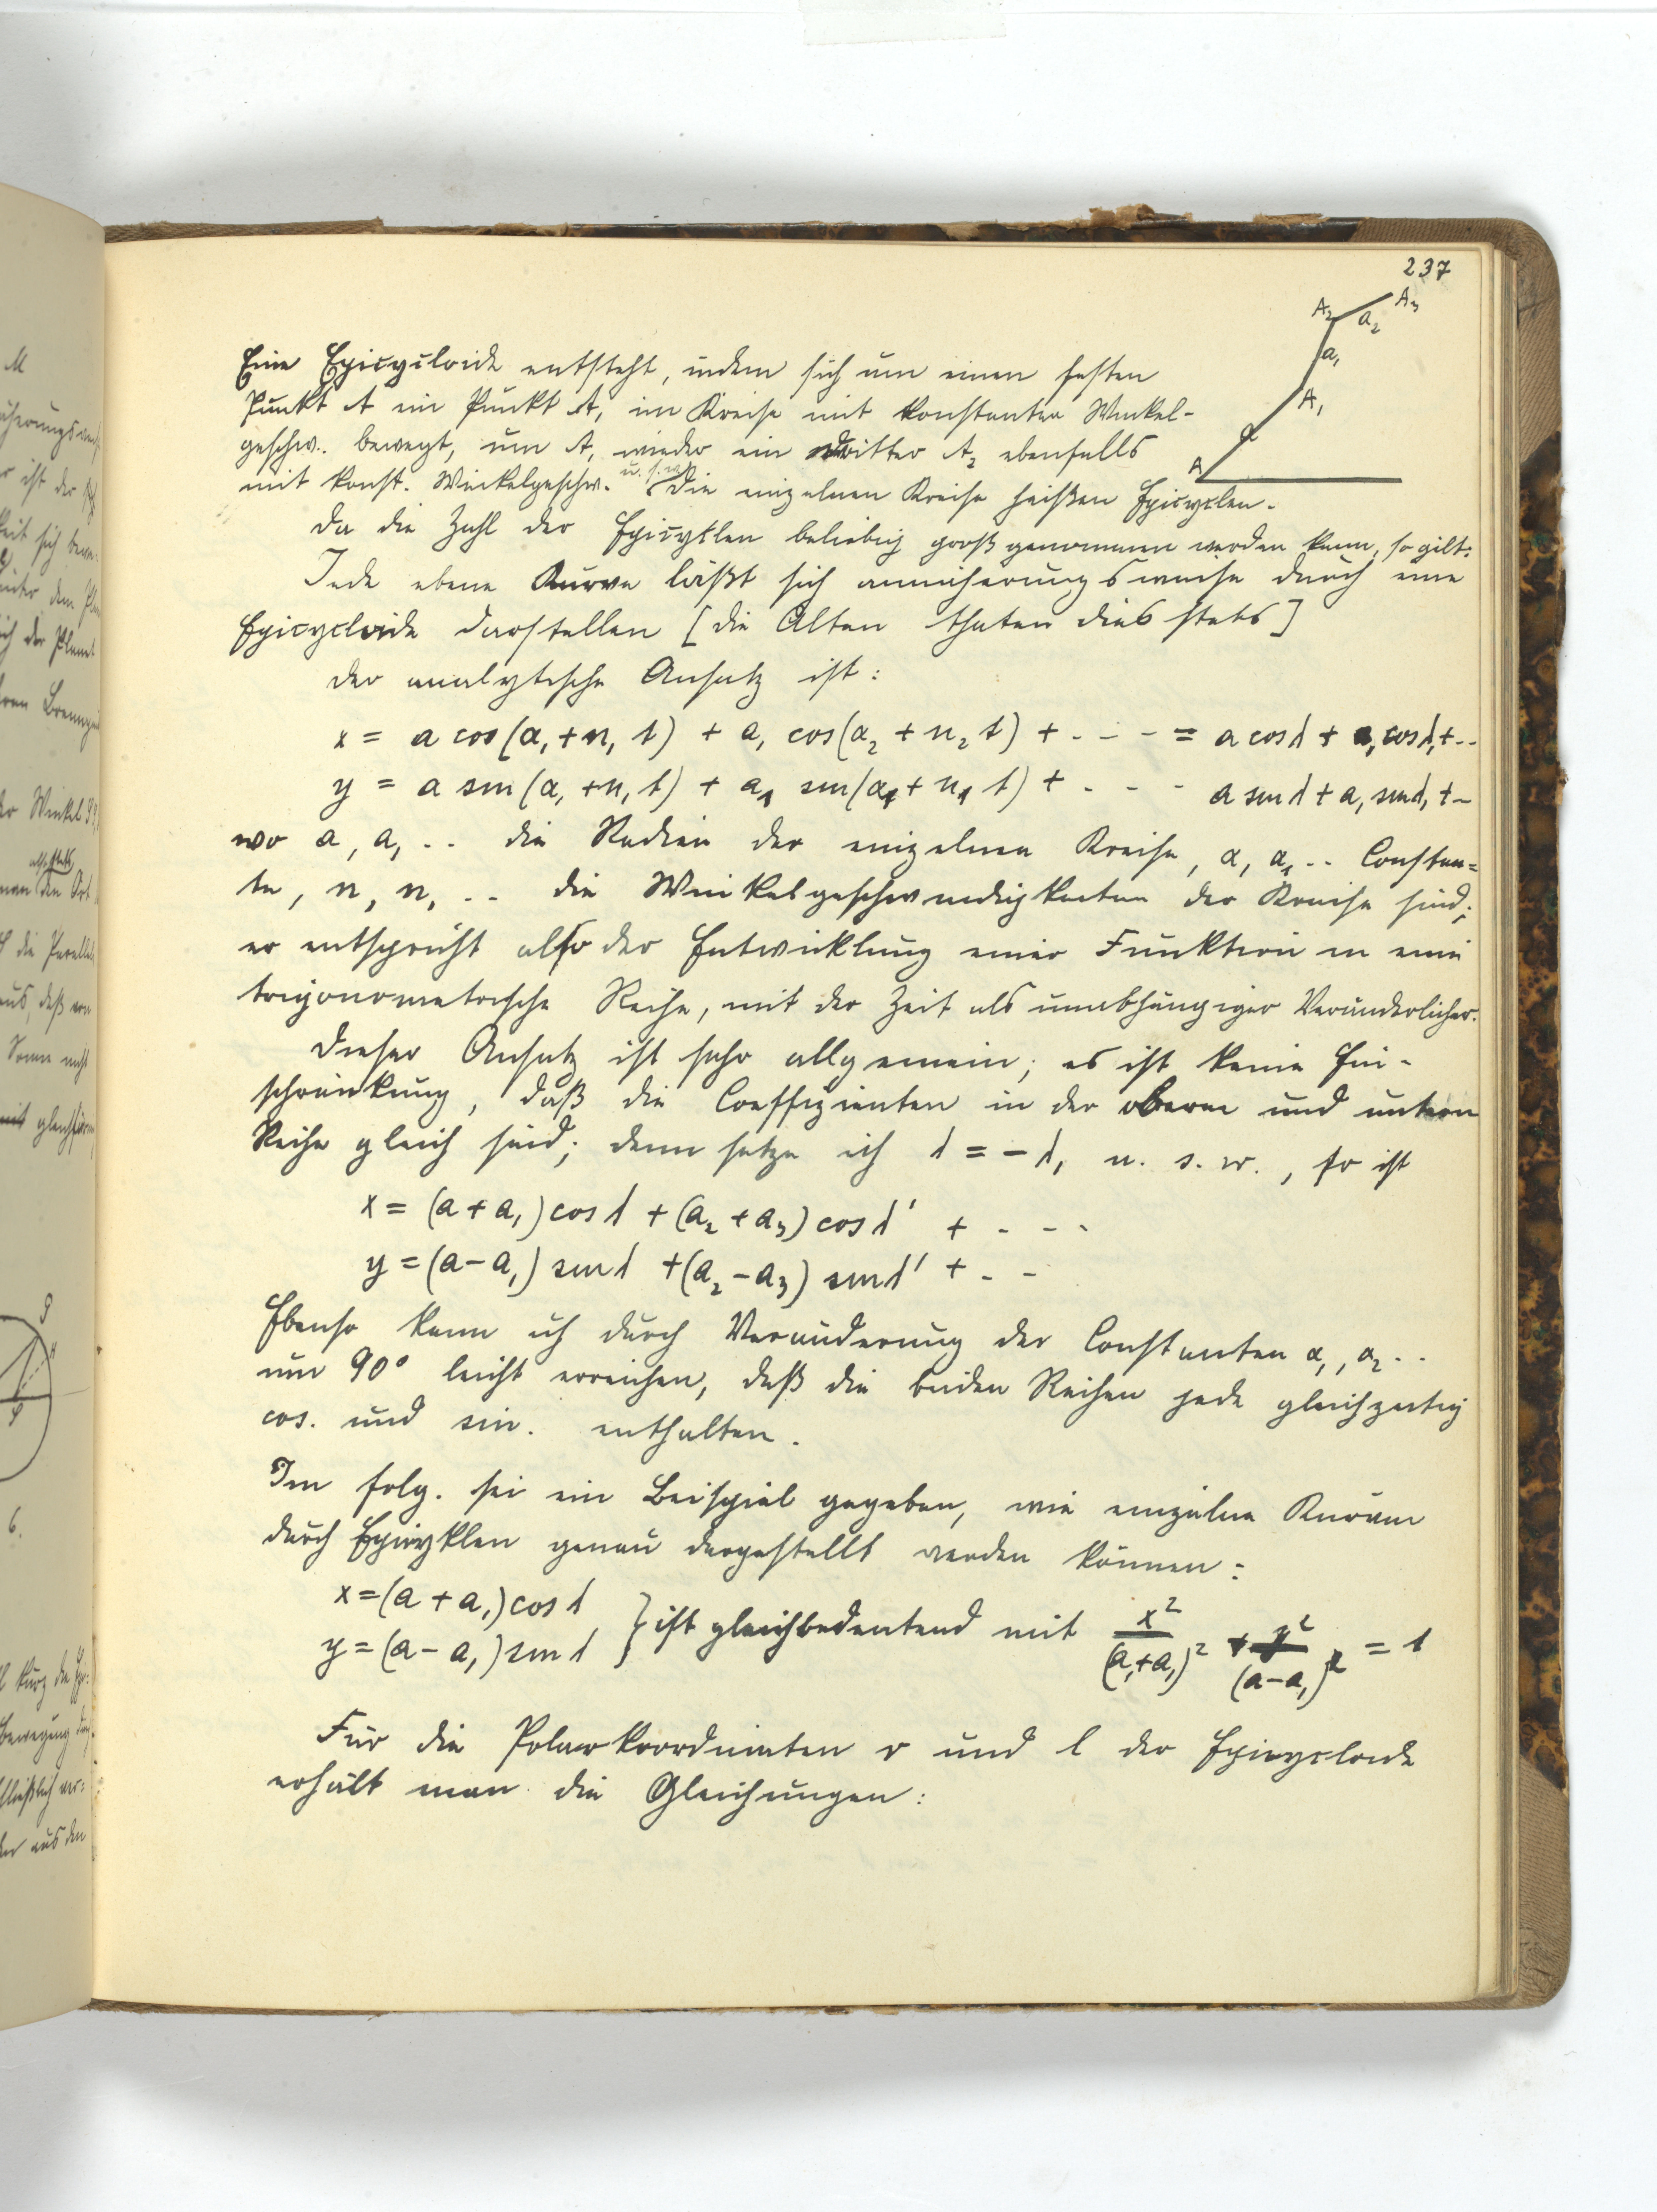 237
A₂ A₃
a₂
a₁
A₁
a
A
Eine Epicycloide entsteht, indem sich um einen festen
Punkt A ein Punkt A₁ im Kreise mit konstanter Winkel-
geschw. bewegt, um A₁ wieder ein dritter A₂ ebenfalls
mit konst. Winkelgeschw. u. s. w. Die einzelnen Kreise heißen Epicyclen.
Da die Zahl der Epicyklen beliebig groß genommen werden kann, so gilt:
Jede ebene Kurve läßt sich annäherungsweise durch eine
Epicycloide darstellen [die Alten thaten dies stets]
Der analytische Ansatz ist:
x = a cos(α₁ + n₁ t) + a₁ cos(α₂ + n₂ t) + - - - = a cos λ + a₁ cos λ₁ + - -
y = a sin(α₁ + n₁ t) + a₁ sin(α₁ + n₁ t) + - - - a sin λ + a₁ sin λ₁ + -
wo a, a₁ - - die Radien der einzelnen Kreise, α, α₁ - - Constan=
te, n, n₁ - - die Winkelgeschwindigkeiten der Kreise sind;
er entspricht also der Entwicklung einer Funktion in eine
trigonometrische Reihe, mit der Zeit als unabhängiger Veränderlicher.
Dieser Ansatz ist sehr allgemein; es ist keine Ein-
schränkung, daß die Coeffizienten in der oberen und untern
Reihe gleich sind; denn setze ich λ = - λ₁ u. s. w., so ist
x = (a + a₁) cos λ + (a₂ + a₃) cos λ' + - - -
y = (a - a₁) sin λ + (a₂ - a₃) sin λ' + - -
Ebenso kann ich durch Veränderung der Constanten α₁, α₂ - -
um 90° leicht erreichen, daß die beiden Reihen jede gleichzeitig
cos. und sin. enthalten.
Im folg. sei ein Beispiel gegeben, wie einzelne Kurven
durch Epicyklen genau dargestellt werden können:
x = (a + a₁) cos λ
y = (a - a₁) sin λ } ist gleichbedeutend mit x²/(a+a₁)² + y²/(a-a₁)² = 1
Für die Polarkoordinaten r und l der Epicycloide
erhält man die Gleichungen: